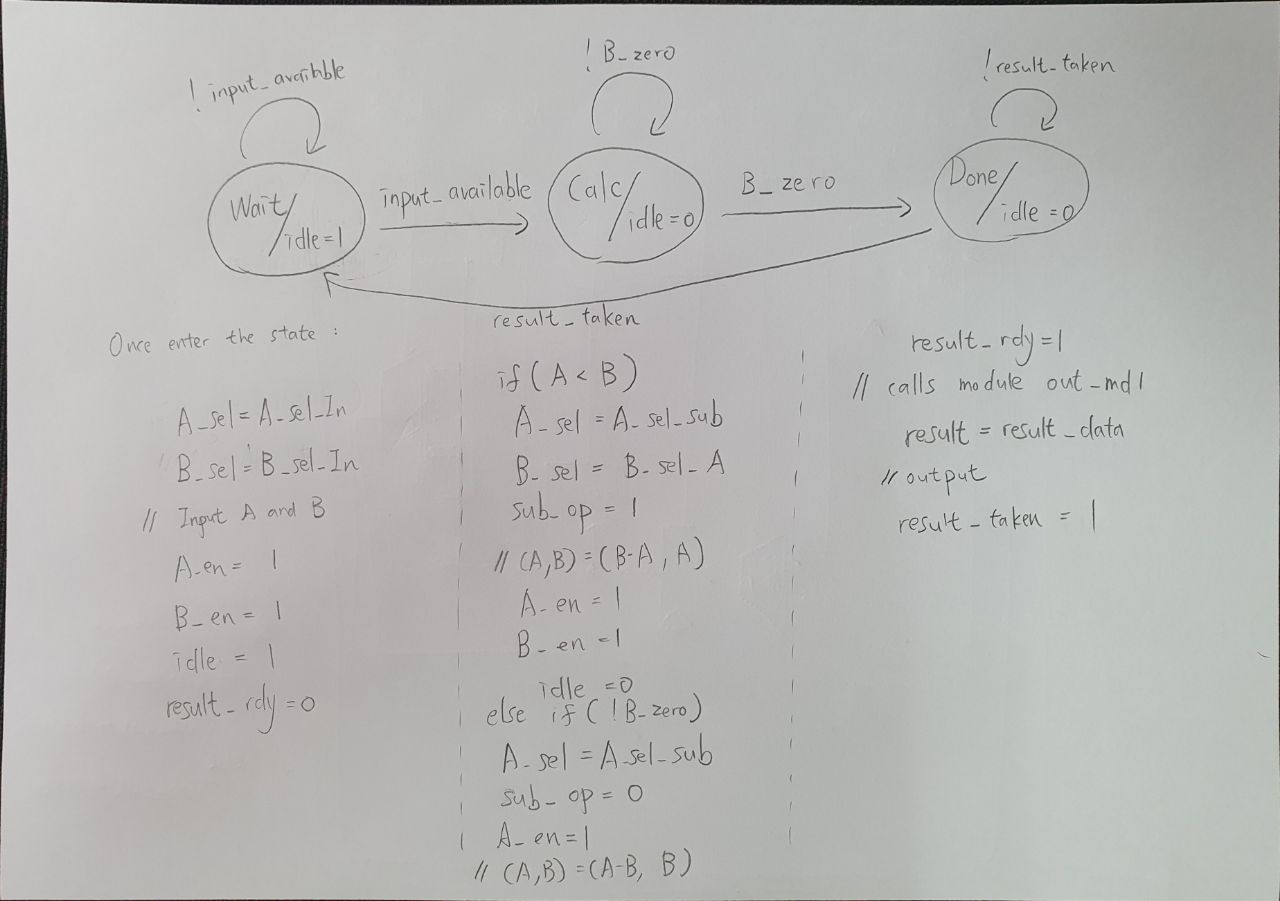 ! input_available
! B_zero
! result_taken
Wait/
idle=1
input_available
Calc/
idle=0
B_zero
Done/
idle=0
result_taken
Once enter the state :
A_sel= A_sel_In
B_sel= B_sel_In
// Input A and B
A_en= 1
B_en= 1
idle = 1
result_rdy=0
if(A < B)
A_sel = A_sel_sub
B_sel = B_sel_A
sub_op = 1
// (A,B)=(B-A, A)
A_en = 1
B_en =1
idle =0
else if(!B_zero)
A_sel =A_sel_sub
sub_op = 0
A_en=1
// (A,B)=(A-B, B)
result_rdy=1
// calls module out_mdl
result = result_data
// output
result_taken = 1